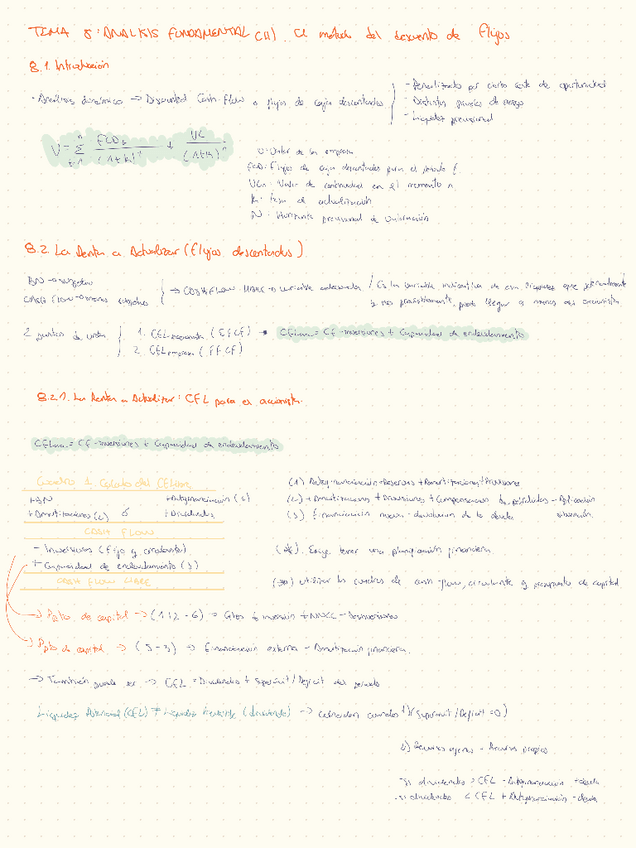 TEMA 8: ANALISIS FUNDAMENTAL (II). El método del descuento de flujos
8.1. Introducción
· Análisis dinámico → Discounted Cash-Flow o flujos de caja descontados
- Penalizado por cierto coste de oportunidad
- Distintas primas de riesgo
- Liquidez previsional
V = Σ FCD / (1+k) + VC / (1+k)
V: Valor de la empresa
FCD: Flujos de caja descontados para el período
VC: Valor de continuidad en el momento n
K: tasa de actualización
N: Horizonte previsional de valoración
8.2. La Renta a Actualizar (Flujos descontados)
BN → subjetivo
CASH FLOW → menos subjetivo
→ CASH FLOW LIBRE → variable adecuada
2 puntos de vista
1. CFL accionista (CFCF) → CFL = CF - inversiones + Capacidad de endeudamiento
2. CFL empresa (FFCF)
8.2.1. La Renta a Actualizar: CFL para el accionista
CFL = CF - inversiones + Capacidad de endeudamiento
Cuadro 1. Cálculo del CF LIBRE
+ BN
+ Autofinanciación (1)
+ Amortizaciones (2) ó
+ Dividendos
CASH FLOW
- Inversiones (fijo y circulante)
+ Capacidad de endeudamiento (3)
CASH FLOW LIBRE
(1) Autofinanciación = Reservas + Amortizaciones + Provisiones
(2) + Amortizaciones + Provisiones + Compensación de pérdidas - Aplicación
(3) Financiación nueva - devolución de la deuda
(*) Exige tener una planificación financiera
(**) utilizar los cuadros de cash-flow, circulante y presupuesto de capital
→ Ppto de capital → (1+2-6) → Gtos de inversión + - Desinversiones
→ Ppto de capital → (5-3) → Financiación externa - Amortización financiera.
→ También puede ser → CFL = Dividendos + Superávit/Déficit del período
Liquidez Potencial (CFL) ≠ Liquidez (dividendo) → coinciden cuando 1) (Superávit/Déficit = 0)
2) Recursos ajenos - Recursos propios
- si dividendos > CFL - Autofinanciación + deuda
- si dividendos < CFL + Autofinanciación - deuda